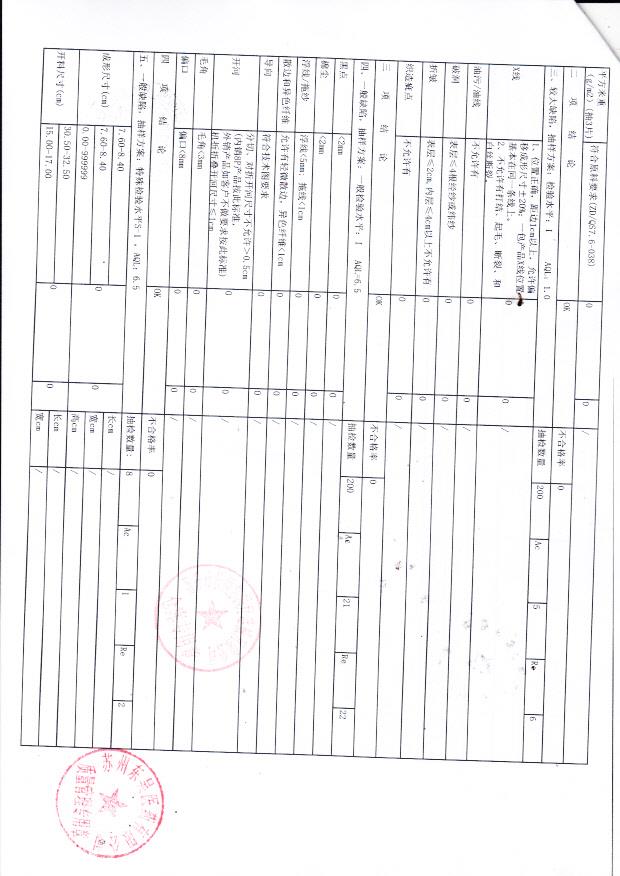 平方米重
(g/m2)(抽3片) 符合原料要求(ZD/QS7.6-038) 0 0 /
二 项 结 论 OK 不合格率 0
三、较大缺陷，抽样方案：检验水平：I AQL：1.0 抽检数量 200 Ac 5 Re 6
X线
1、位置正确，距边1cm以上，允许偏
移成形尺寸±20%；一包产品X线位置
基本在同一条线上。
2、不允许有打结、起毛、断裂、和
白丝断裂。
0 0 /
油污/油线 不允许有 0 0 /
破洞 表层≤4根经纱或纬纱 0 0 /
折皱 表层≤2cm,内层≤4cm以上不允许有 0 0 /
织造疵点 不允许有 0 0 /
三 项 结 论 OK 不合格率 0
四、一般缺陷，抽样方案：一般检验水平：I AQL=6.5 抽检数量 200 Ac 21 Re 22
黑点 <2mm 0 0 /
棉尘 <2mm 0 0 /
浮线/拖纱 浮线<5mm；拖线<1cm 0 0 /
散边和异色纤维 允许有轻微散边，异色纤维<1cm 0 0 /
导向 符合技术图要求 0 0 /
开间
分切、对折开间尺寸不允许＞0.5cm
(内销8P产品按此标准,
外销产品如客户不做要求按此标准)
机折折叠开间尺寸≤1cm
0 0 /
毛角 毛角<3mm 0 0 /
偏口 偏口<8mm 0 0 /
四 项 结 论 OK 不合格率 0
五、一般缺陷，抽样方案：特殊检验水平S-1 ，AQL：6.5 抽检数量： 8 Ac 1 Re 2
成形尺寸(cm)
7.60-8.40 0 0 长cm /
7.60-8.40 宽cm /
0.00-999999 高cm /
开料尺寸(cm)
30.50-32.50 0 0 长cm /
15.00-17.00 宽cm /
苏州东吴医用有限公司
质量管理专用章